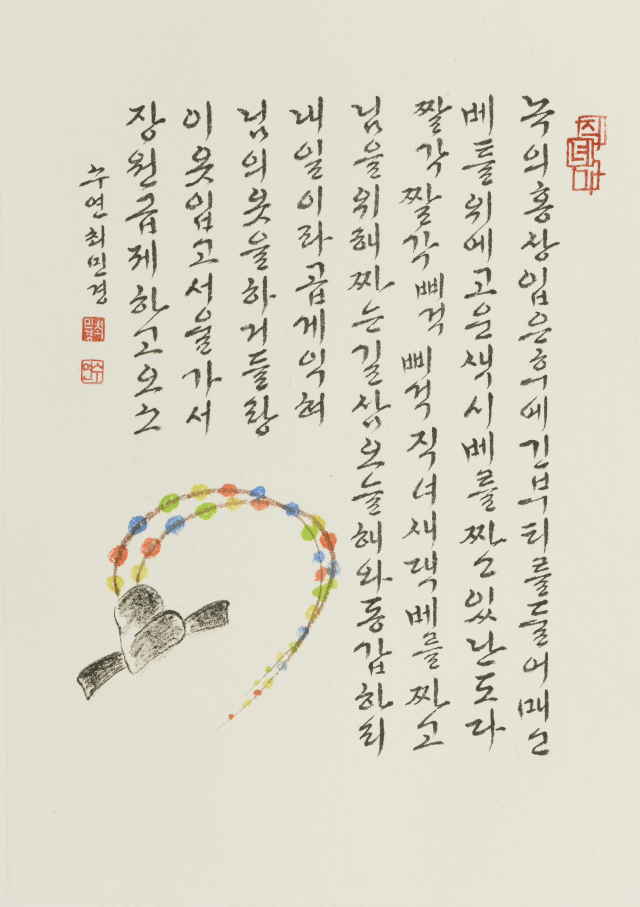 직녀가
녹의홍상입은허에긴부티를들어매고
베틀위에고운색시베를짜고있난도다
짤각짤각삐걱삐걱직녀새댁베를짜고
님을위해짜는길삼오늘해와동갑하리
내일이라곱게익혀
님의옷을하거들랑
이옷입고서울가서
장원급제하고오소
수연최민경
최민경
수연